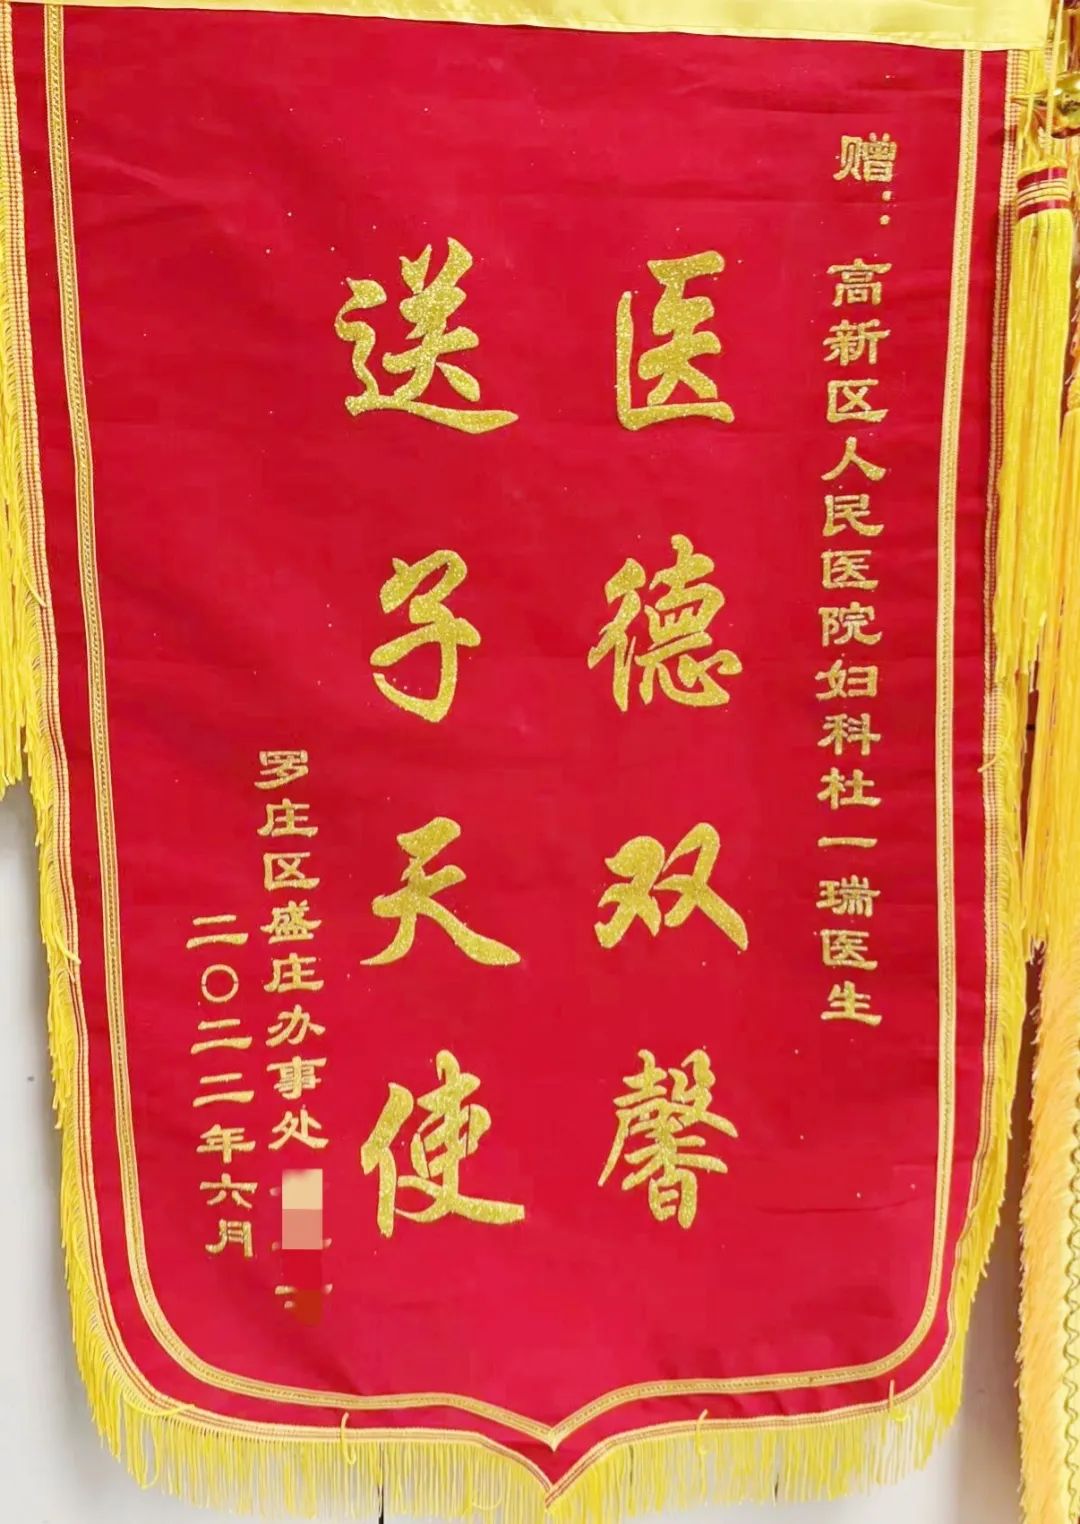 赠：高新区人民医院妇科杜一瑞医生
医德双馨
送子天使
罗庄区盛庄办事处
二〇二二年六月